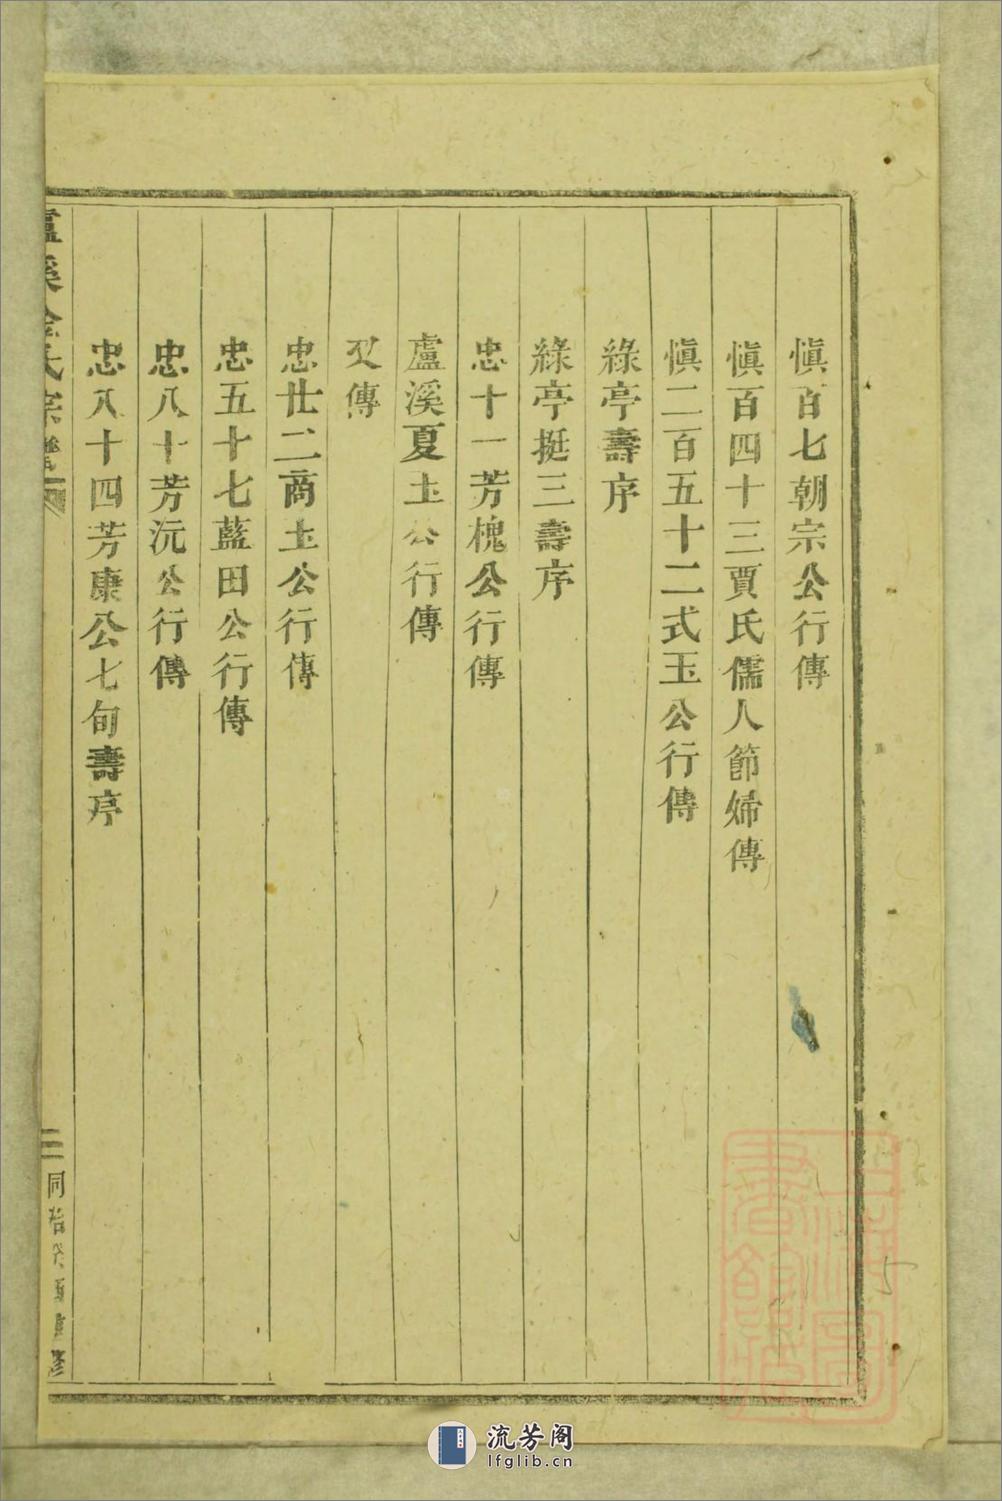 愼百七朝宗公行傳
愼百四十三賈氏儒人節婦傳
愼二百五十二式玉公行傳
綠亭壽序
綠亭挺三壽序
忠十一芳槐公行傳
盧溪夏土公行傳
又傳
忠廿二商土公行傳
忠五十七藍田公行傳
忠八十芳沅公行傳
忠八十四芳康公七旬壽序
盧溪余氏宗譜
二
同治癸酉重修
上海圖書館藏
5
流芳阁
lfglib.cn